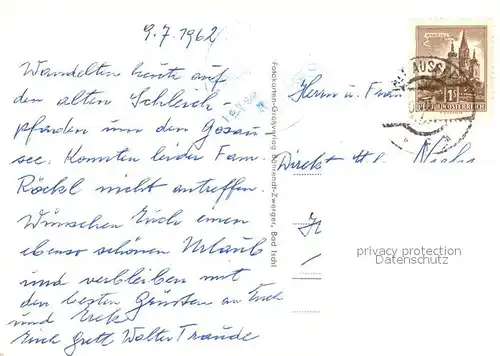 9.7.1962
Wandelten heute auf
den alten Schleich-
pfaden um den Gosau
see. Konnten leider Fam.
Röckl nicht antreffen.
Wünschen Euch einen
ebenso schönen Urlaub
und verbleiben mit
den besten Grüßen an Euch
und
Eich Walter Traude
Fotokarten-Großverlag Zwerger, Bad Ischl
Herrn u. Frau
Direkt
REPUBLIK ÖSTERREICH
AUSSEE
privacy protection
Datenschutz